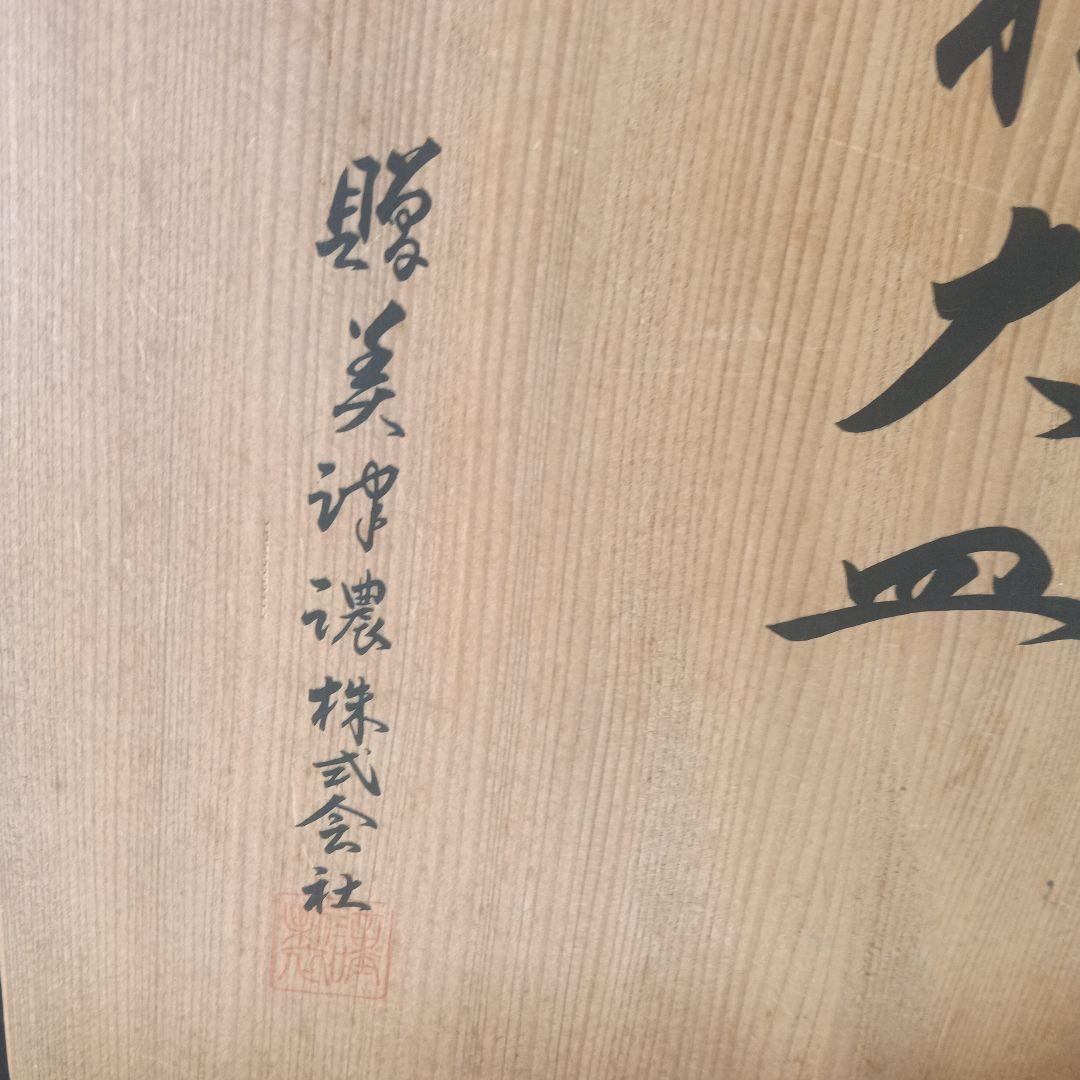 大皿
贈美津濃株式会社